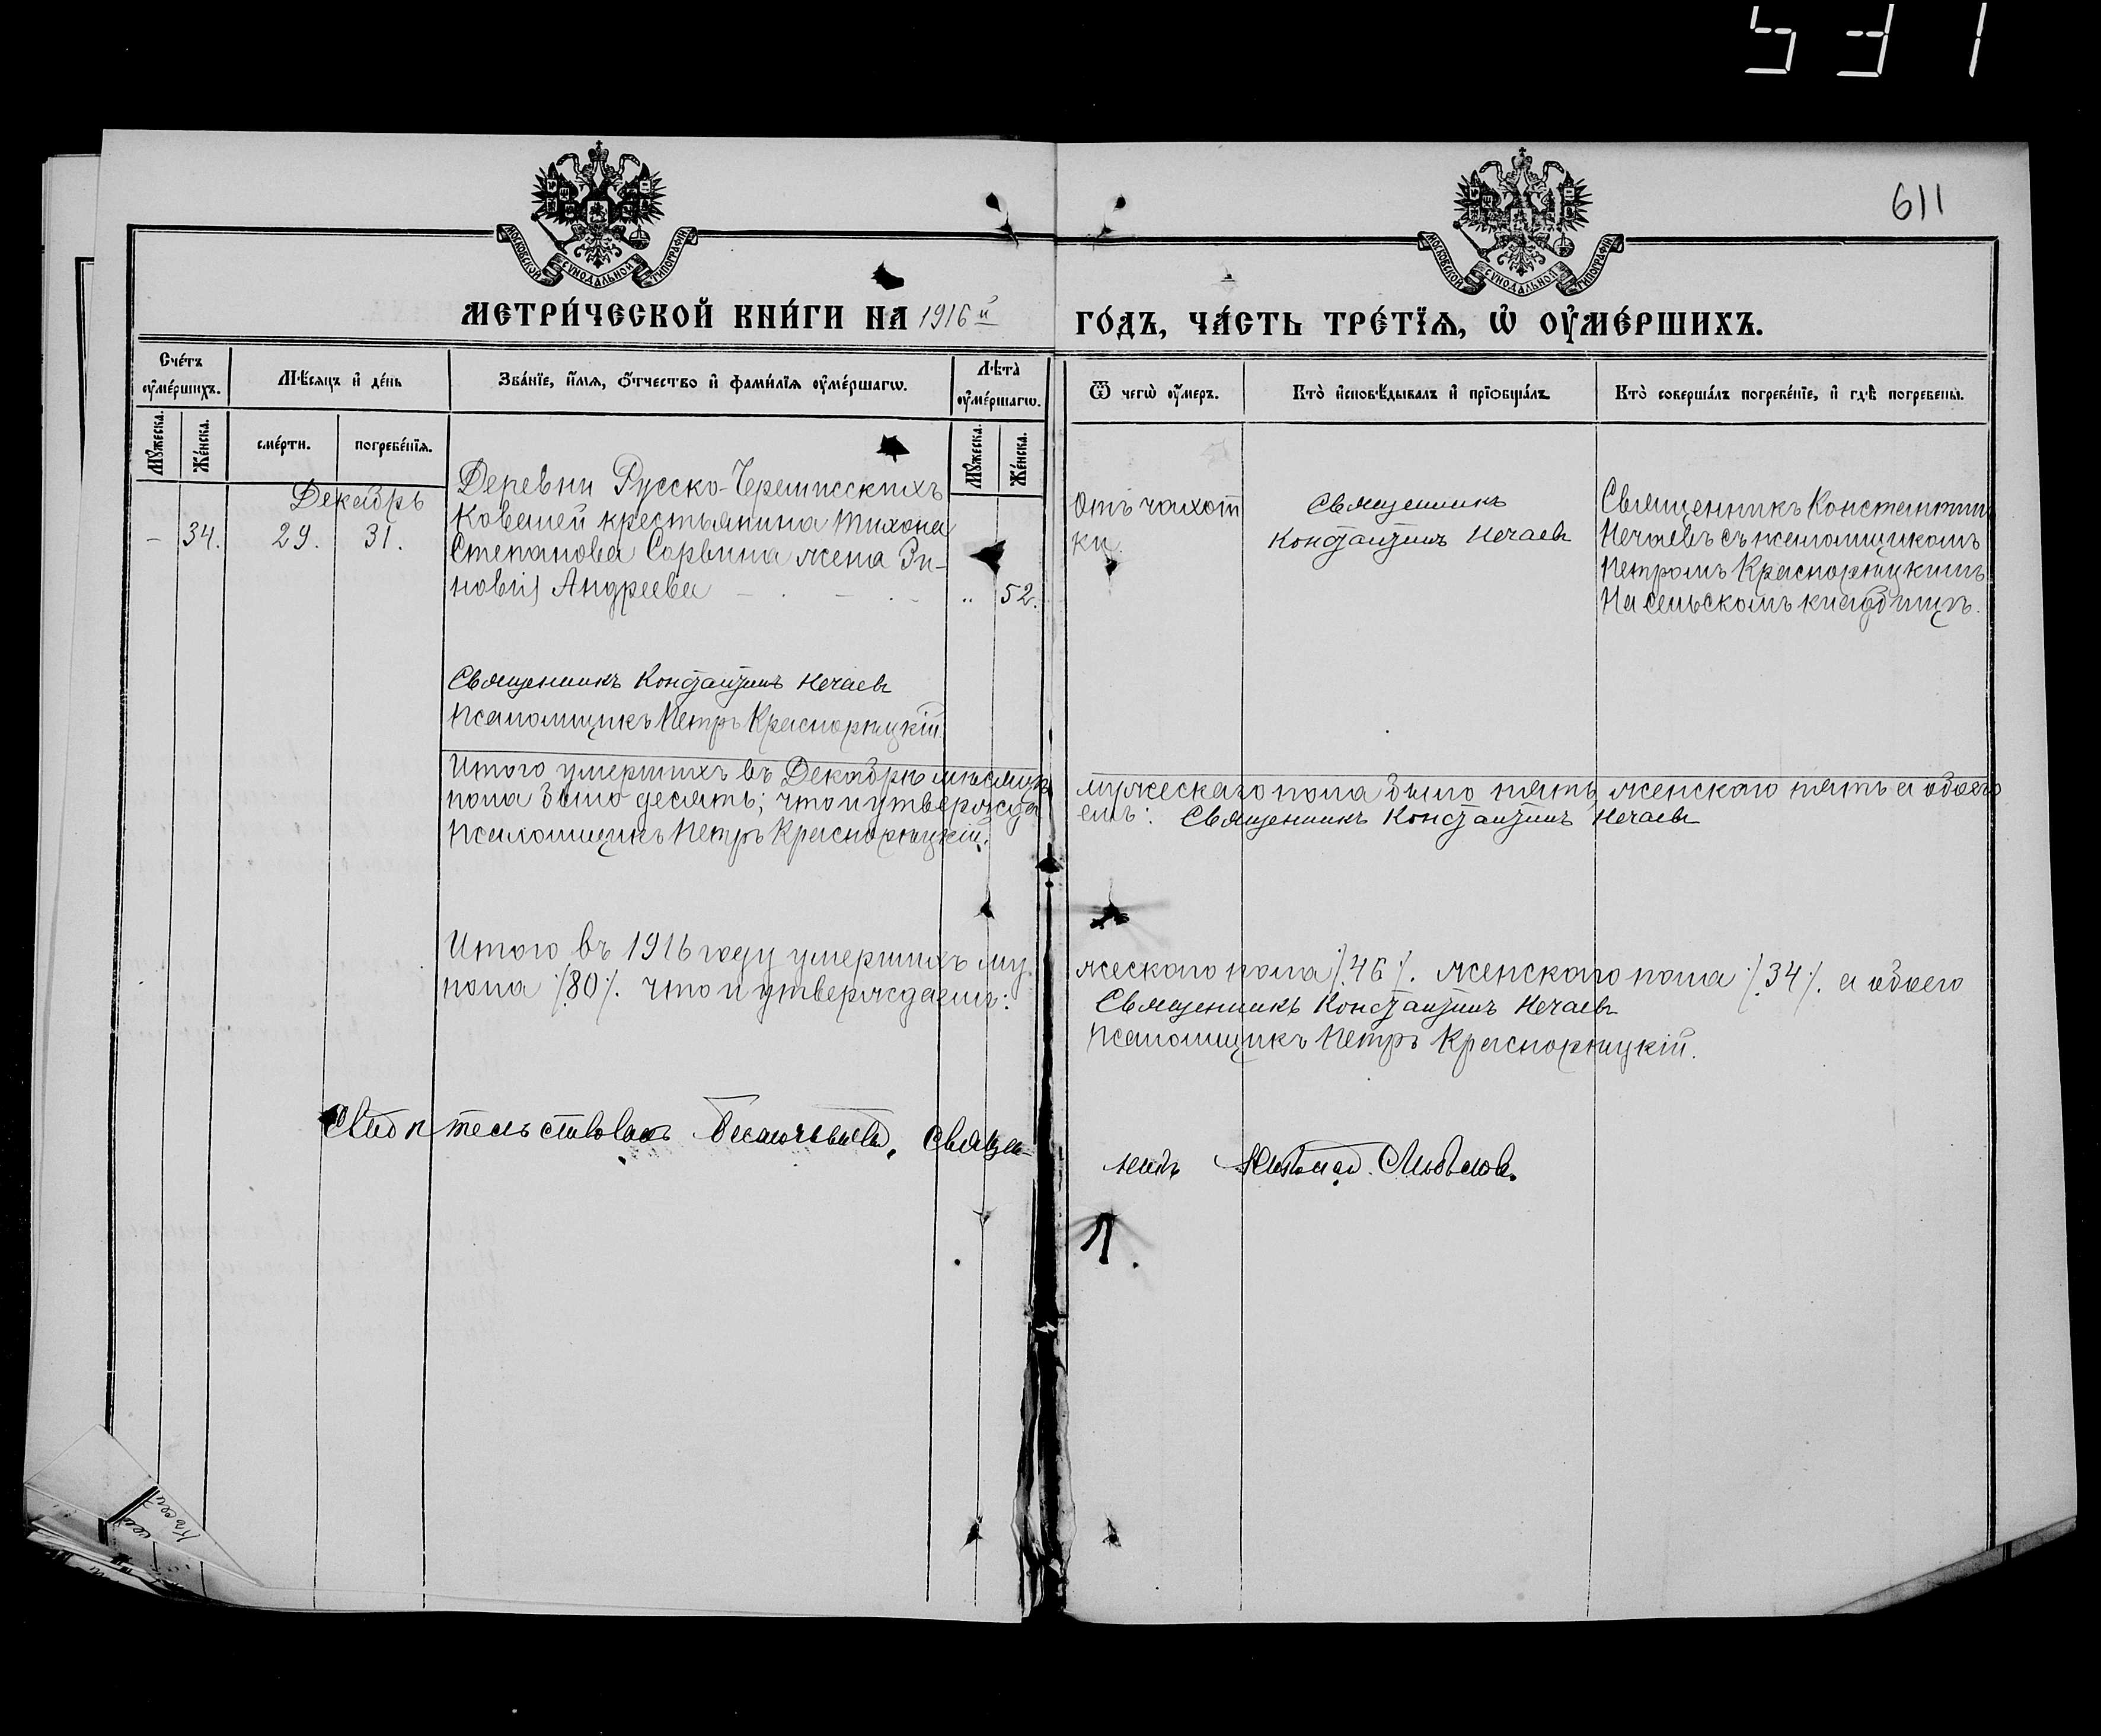 531
611
МОСКОВСКОЙ СУНОДАЛЬНОЙ ТИПОГРАФІИ
МОСКОВСКОЙ СУНОДАЛЬНОЙ ТИПОГРАФІИ
МЕТРИ́ЧЕСКОЙ КНИ́ГИ НА 1916 й
ГО́ДЪ, ЧА́СТЬ ТРЕ́ТЇѦ, Ѡ҆ ОУ҆МЕ́РШИХЪ.
Сче́тъ оу҆ме́ршихъ.
Мѣ́сяцъ и҆ де́нь
Зва́нїе, и҆́мѧ, ѻ҆́тчество и҆ фами́лїѧ оу҆ме́ршагѡ.
Лѣ́та оу҆ме́ршагѡ.
Ѿ чегѡ̀ оу҆́меръ.
Кто̀ и҆сповѣ́дывалъ и҆ прїѡбща́лъ.
Кто̀ соверша́лъ погребе́нїе, и҆ гдѣ̀ погребены̀.
Мꙋ́жеска.
Же́нска.
сме́рти.
погребе́нїѧ.
Мꙋ́жеска.
Же́нска.
Декабрь
– 34. 29. 31.
Деревни Русско-Черемисскихъ
Ковалей крестьянина Тихона
Степанова Сорвина жена Зи-
новія Андреева
„ 52.
Отъ чахот
ки.
Священникъ
Константинъ Нечаевъ
Священникъ Константинъ
Нечаевъ съ псаломщикомъ
Петромъ Краснорѣцкимъ
На сельскомъ кладбищѣ.
Священникъ Константинъ Нечаевъ
Псаломщикъ Петръ Краснорѣцкій.
Итого умершихъ въ Декабрѣ мѣсяцѣ мужескаго пола было пять, женскаго пять а обоего
пола было десять; что и утвержда емъ: Священникъ Константинъ Нечаевъ
Псаломщикъ Петръ Краснорѣцкій.
Итого въ 1916 году умершихъ му жескаго пола /46/. женскаго пола /34/. а обоего
пола /80/. что и утверждаемъ:
Священникъ Константинъ Нечаевъ
Псаломщикъ Петръ Краснорѣцкій.
Свидѣтельствовалъ Священ-
никъ